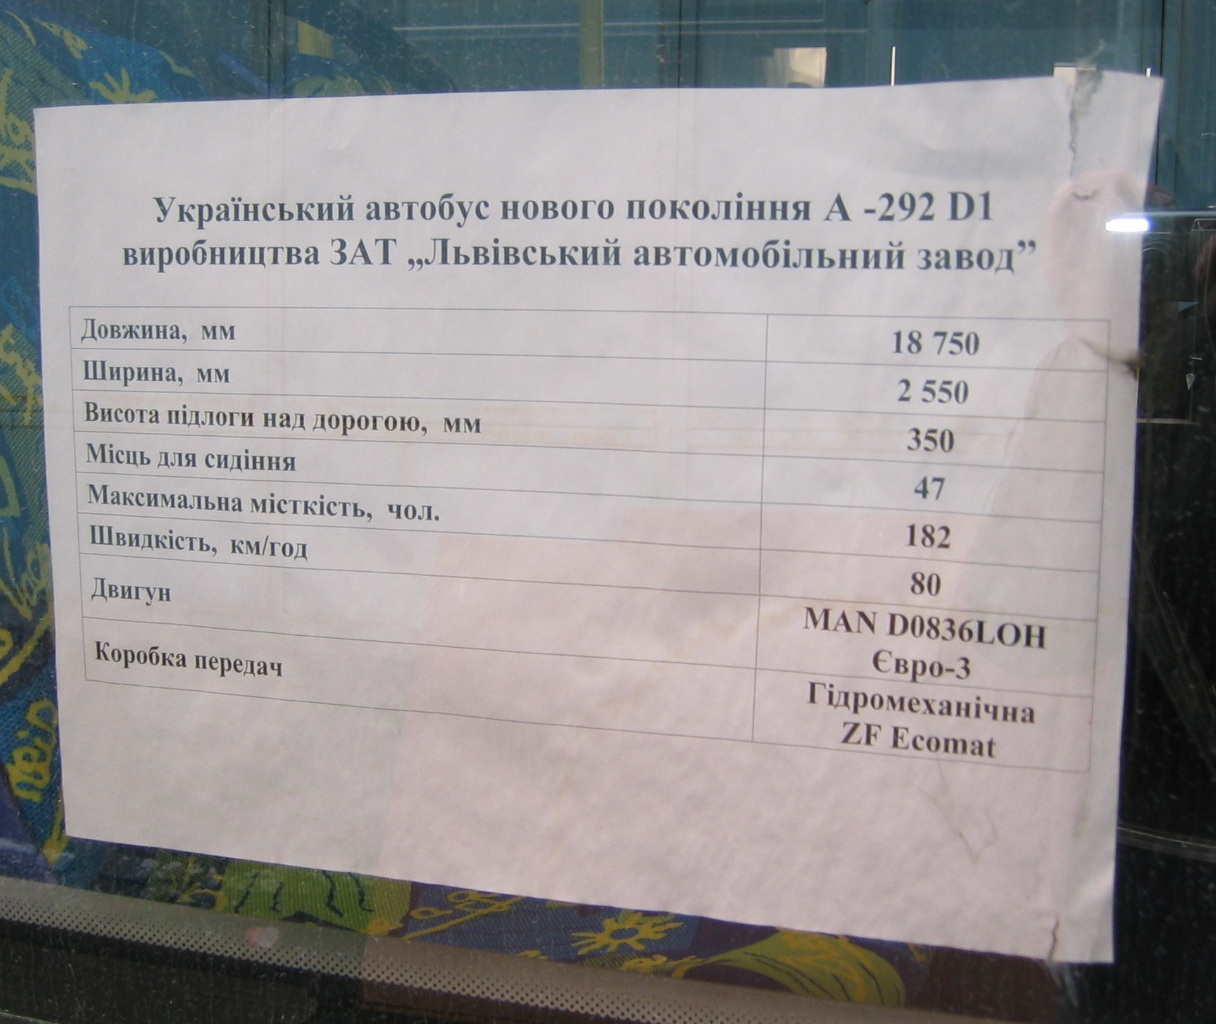 Український автобус нового покоління А -292 D1
виробництва ЗАТ „Львівський автомобільний завод”
Довжина, мм 18 750
Ширина, мм 2 550
Висота підлоги над дорогою, мм 350
Місць для сидіння 47
Максимальна місткість, чол. 182
Швидкість, км/год 80
Двигун MAN D0836LOH
Євро-3
Коробка передач Гідромеханічна
ZF Ecomat